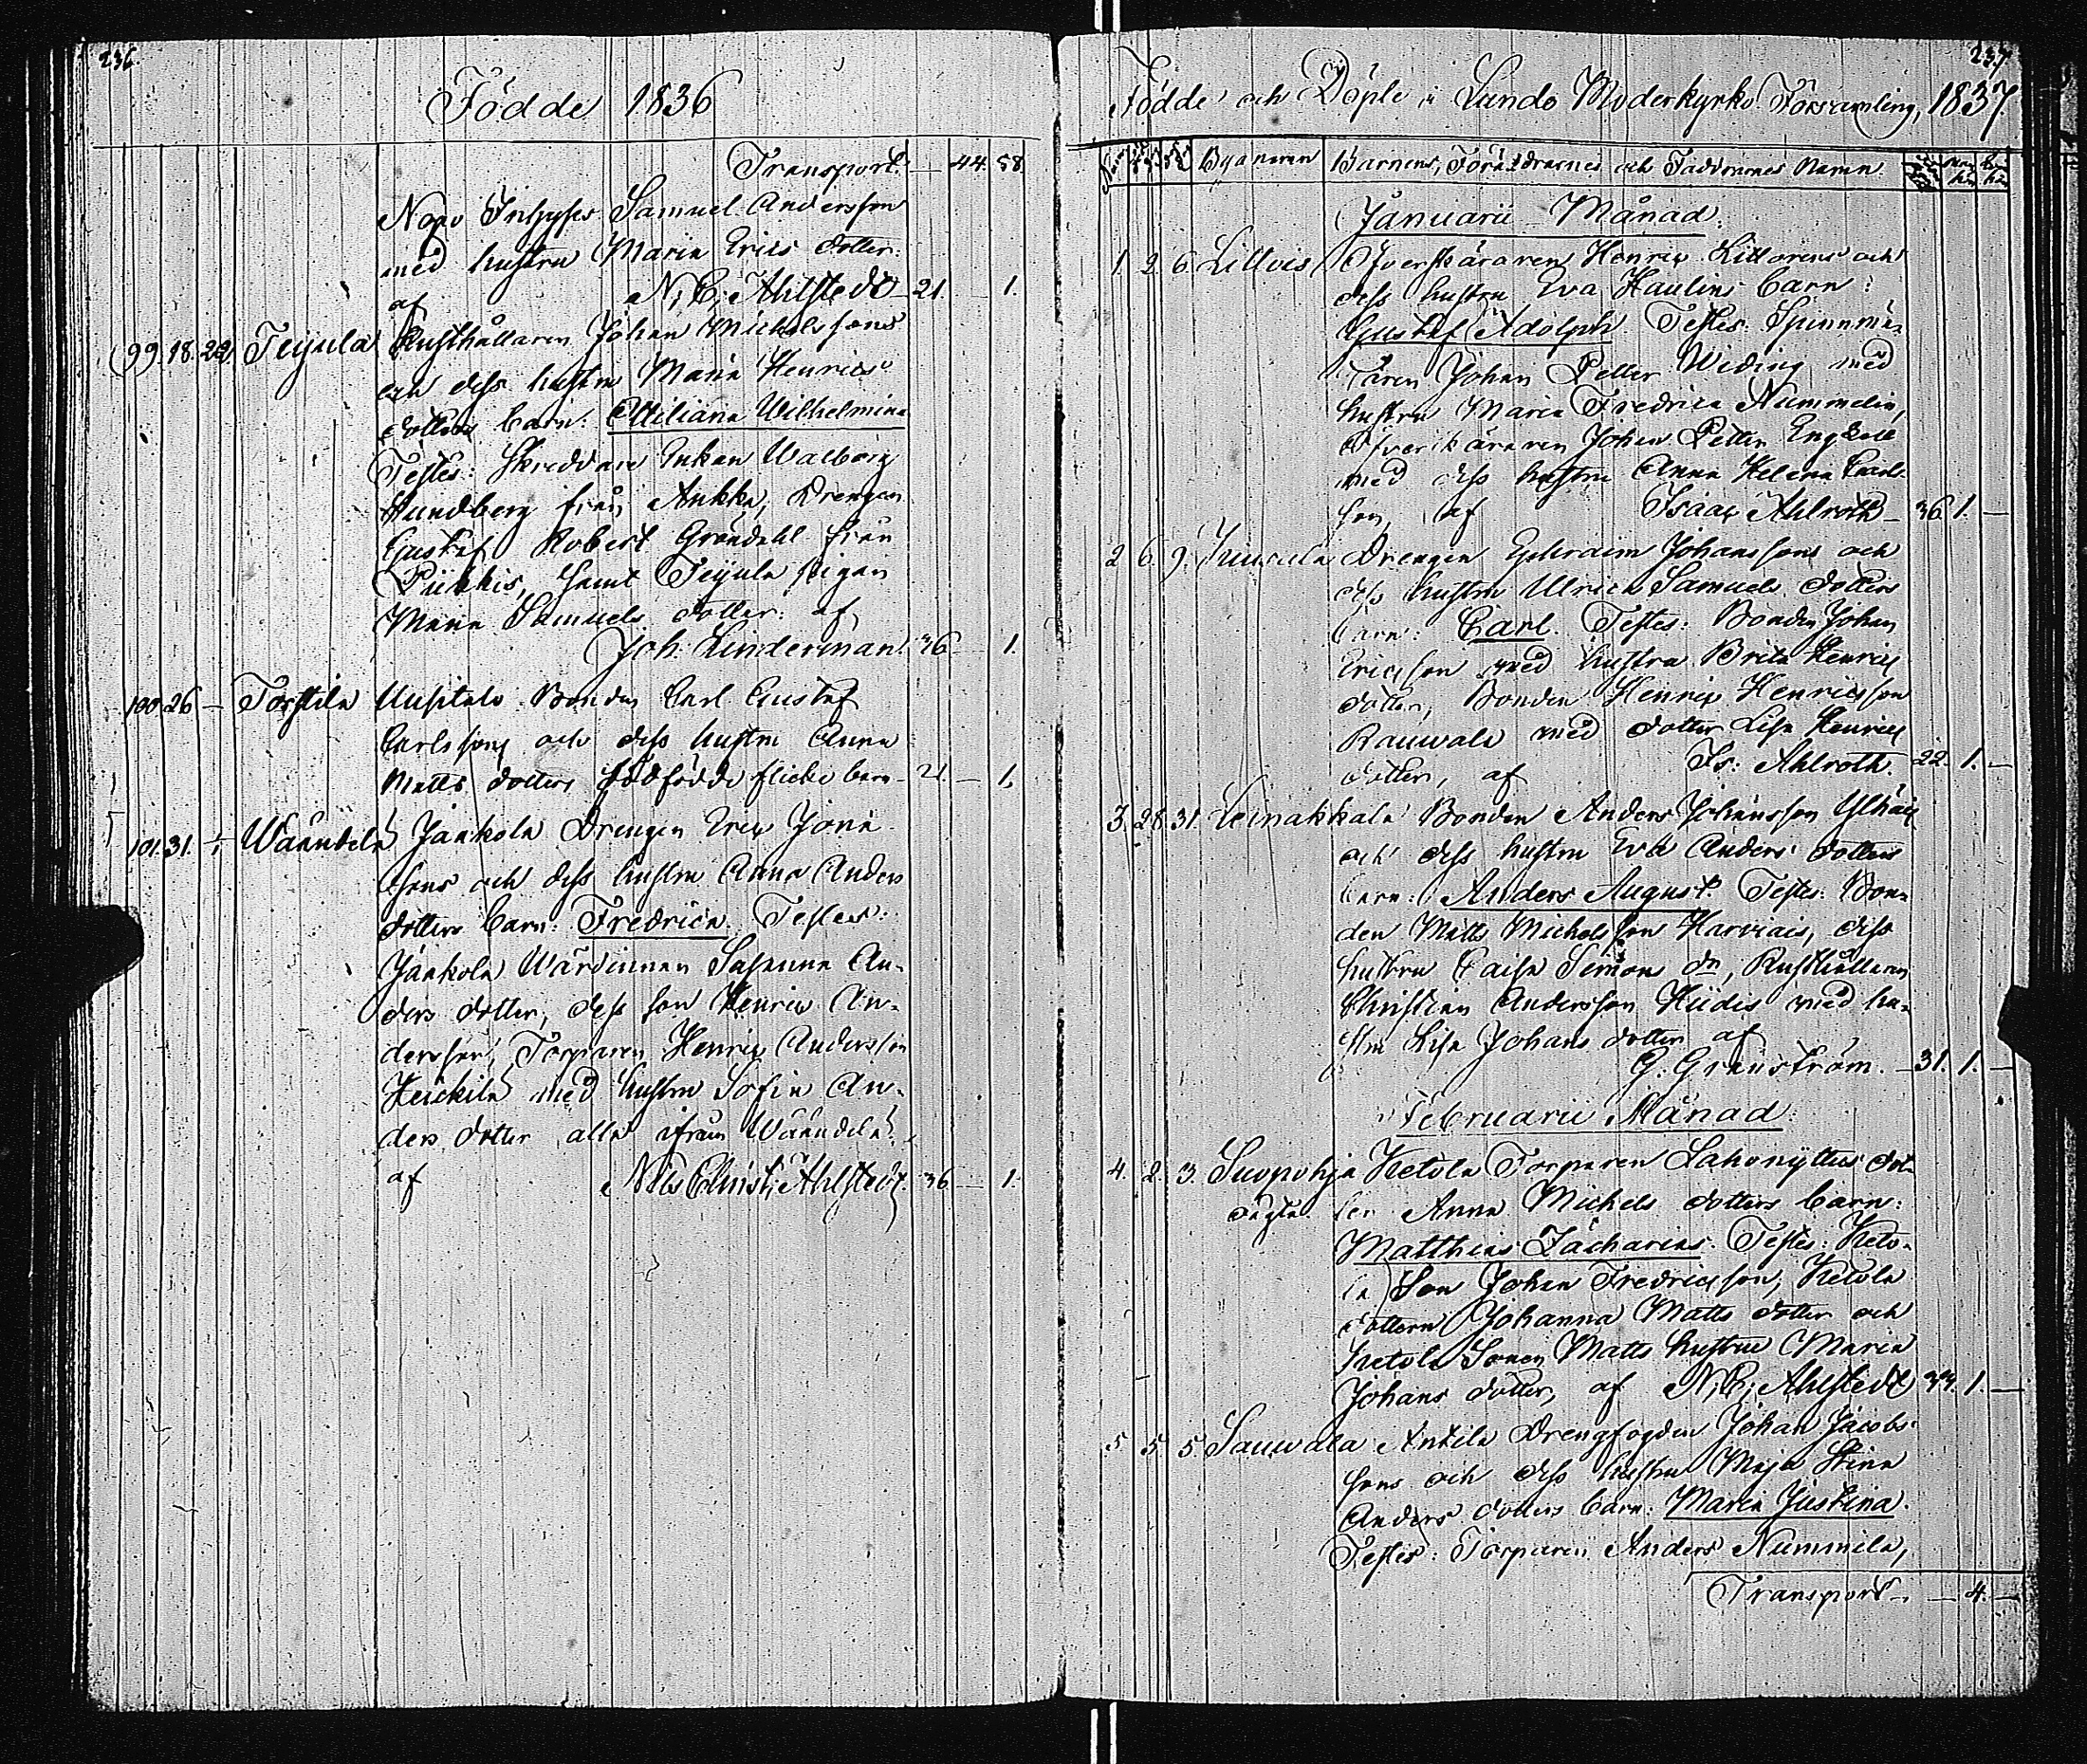 236.
Födde 1836
Transport. — 44. 58.
Nopo Inhyses Samuel Andersson
med hustru Maria Erics dotter.
af N. C. Ahlstedt 21. — 1.
99. 18. 20. Teijula Rusthållaren Johan Michelssons
och dess hustru Maria Henrics
dotters barn: Ottiliana Wilhelmina
Testes: Skreddare Enkan Walborg
Lundberg från Aukka, Drengen
Gustaf Robert Gröndahl från
Piikkis, samt Teijula pigan
Maria Samuels dotter. af
Joh. Linderman. 36 — 1.
100. 26 — Torstila Uusitalo Bonden Carl Gustaf
Carlssons och dess hustru Anna
Matts dotters dödfödde flicke barn — 21 — 1.
101. 31. — Wäänälä Jaakola Drengen Eric Jona
sons och dess hustru Anna Anders
dotters barn: Fredrica. Testes:
Jaakola Wärdinnan Susanna An-
ders dotter, dess son Henric An-
dersson, Torparen Henric Andersson
Heickilä med hustru Sofia An-
ders dotter alla ifrån
af Nils Christ. Ahlstedt. 36 — 1.
237
Födde och Döpte i Lundo Moderkyrko Församling, 1837.
Byanamn Barnens, Föräldrarnes och Faddrarnes Namn
Januarii Månad.
1. 2. 6. Littois Öfverskäraren Henric Littorens och
dess hustru Eva Haulins barn:
Gustaf Adolph. Testes. Spinnmä-
taren Johan Petter Widing med
hustru Maria Fredrica Nummelin,
Öfverskäraren Johan Petter
med dess hustru Anna Helena Carls-
son, af Isaac Ahlroth — 36. 1. —
2 6. 9. Drengen Ephraim Johanssons och
dess hustru Ulrica Samuels dotters
barn: Carl. Testes: Bonden Johan
Ericsson med hustru Brita Henrics
dotter, Bonden Henric Henricsson
Rauwala med dotter Lisa Henrics
dotter, af Is: Ahlroth. 22. 1. —
3. 28. 31. Leinakkala Bonden Anders Johansson
och dess hustru Eva Anders dotters
barn: Anders August. Testes: Bon-
den Matts Michelsson Karviais, dess
hustru Caisa Simons dr, Rusthållaren
Christian Andersson Hiidis med hu-
stru Lisa Johans dotter af
G. Granström. — 31. 1. —
Februarii Månad.
4. 2. 3. Suopohja Ketola Torparen Lahonyttus dot-
ter Anna Michels dotters barn:
Matthias Zacharias. Testes: Keto-
la Son Johan Fredricsson, Ketola
dottern Johanna Matts dotter och
Ketola Sonen Matts hustru Maria
Johans dotter, af N. C. Ahlstedt 33. 1. —
5 5 5. Sauwala Anttila Drengfogden Johan Jacobs-
sons och dess hustru Maja Stina
Anders dotters barn: Maria Justina.
Testes: Torparen Anders Nummila,
Transport — — 4. —